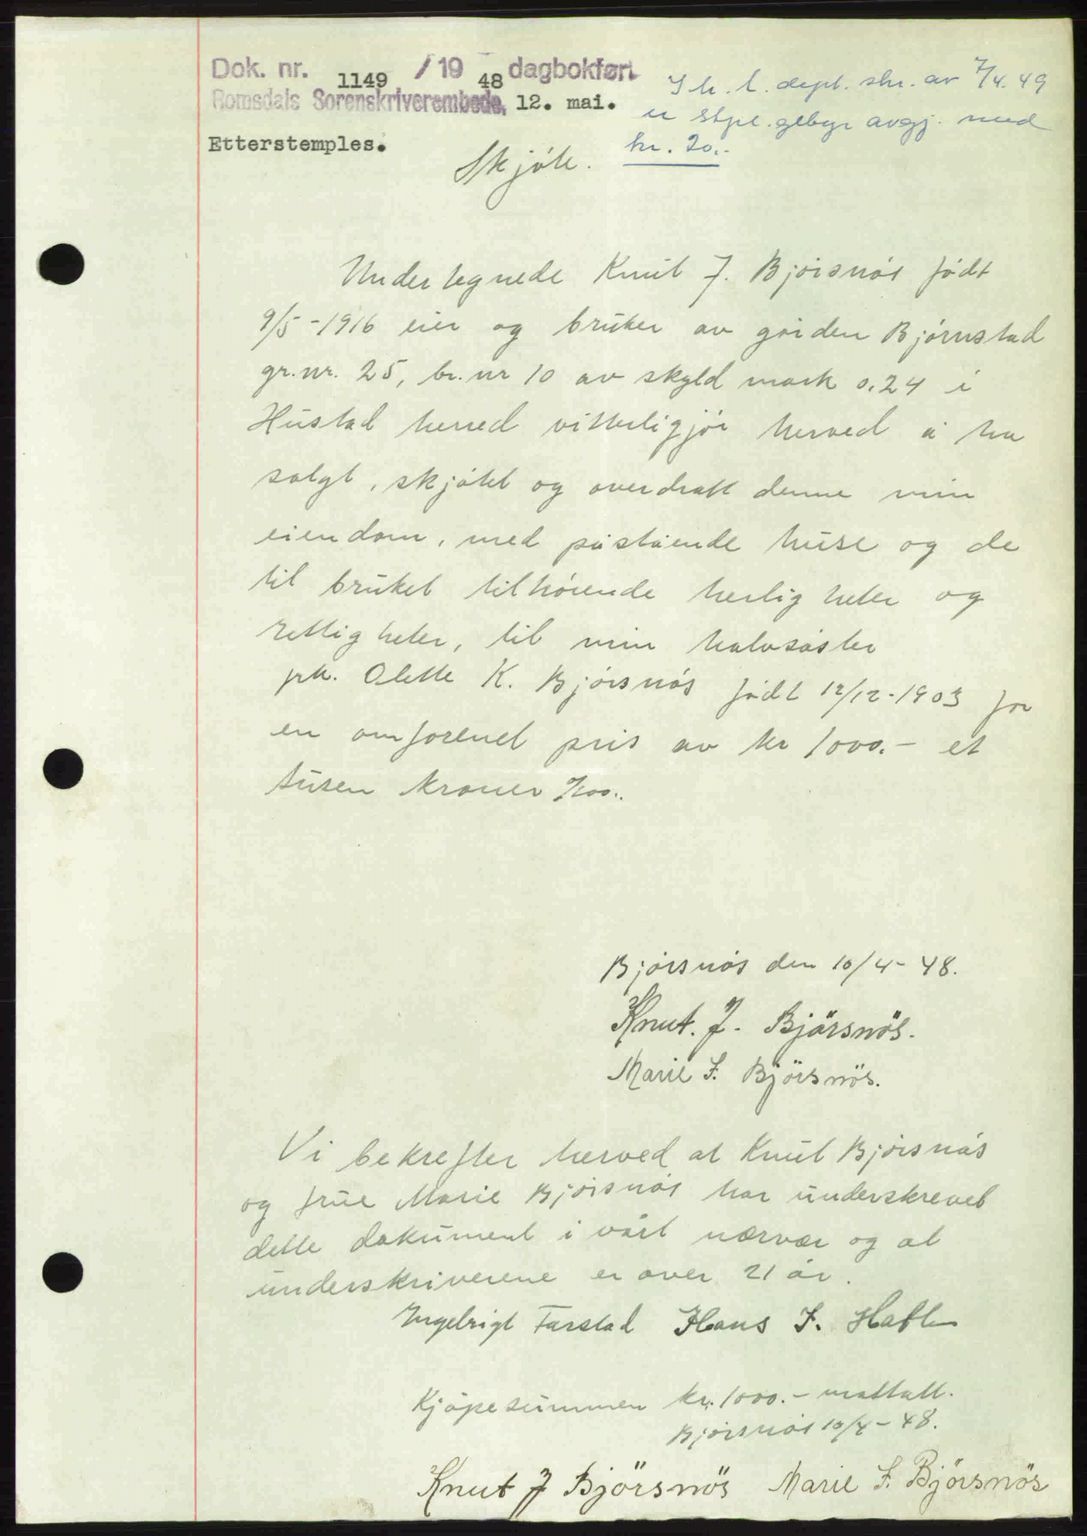 Dok. nr. 1149 / 19 48 dagbokført
Romsdals Sorenskriverembede, 12. mai.
Etterstemples.
I h. t. dept. skr. av 7/4. 49
er stpl. gebyr avgj. med
kr. 20.-
Skjöte.
Undertegnede Knut J. Björsnös födt
9/5 -1916 eier og bruker av gården Björnstad
gr.nr. 25, br.nr 10 av skyld mark 0.24 i
Hustad herred vitterligjör herved å ha
solgt, skjötet og overdratt denne min
eiendom, med påstående huse og de
til bruket tilhörende herligheter og
rettigheter, til min halvsöster
frk. Olette K. Björsnös födt 12/12-1903 for
en omforenet pris av kr 1000.- et
tusen kroner
Björsnös den 10/4- 48.
Knut. J. Björsnös.
Marie F. Björsnös.
Vi bekrefter herved at Knut Björsnös
og frue Marie Björsnös har underskrevet
dette dokument i vårt nærvær og at
underskriverene er over 21 år.
Ingebrigt Farstad Hans J.
Kjöpesummen kr. 1000.- mottatt.
Björsnös 10/4- 48.
Knut J Björsnös Marie F. Björsnös